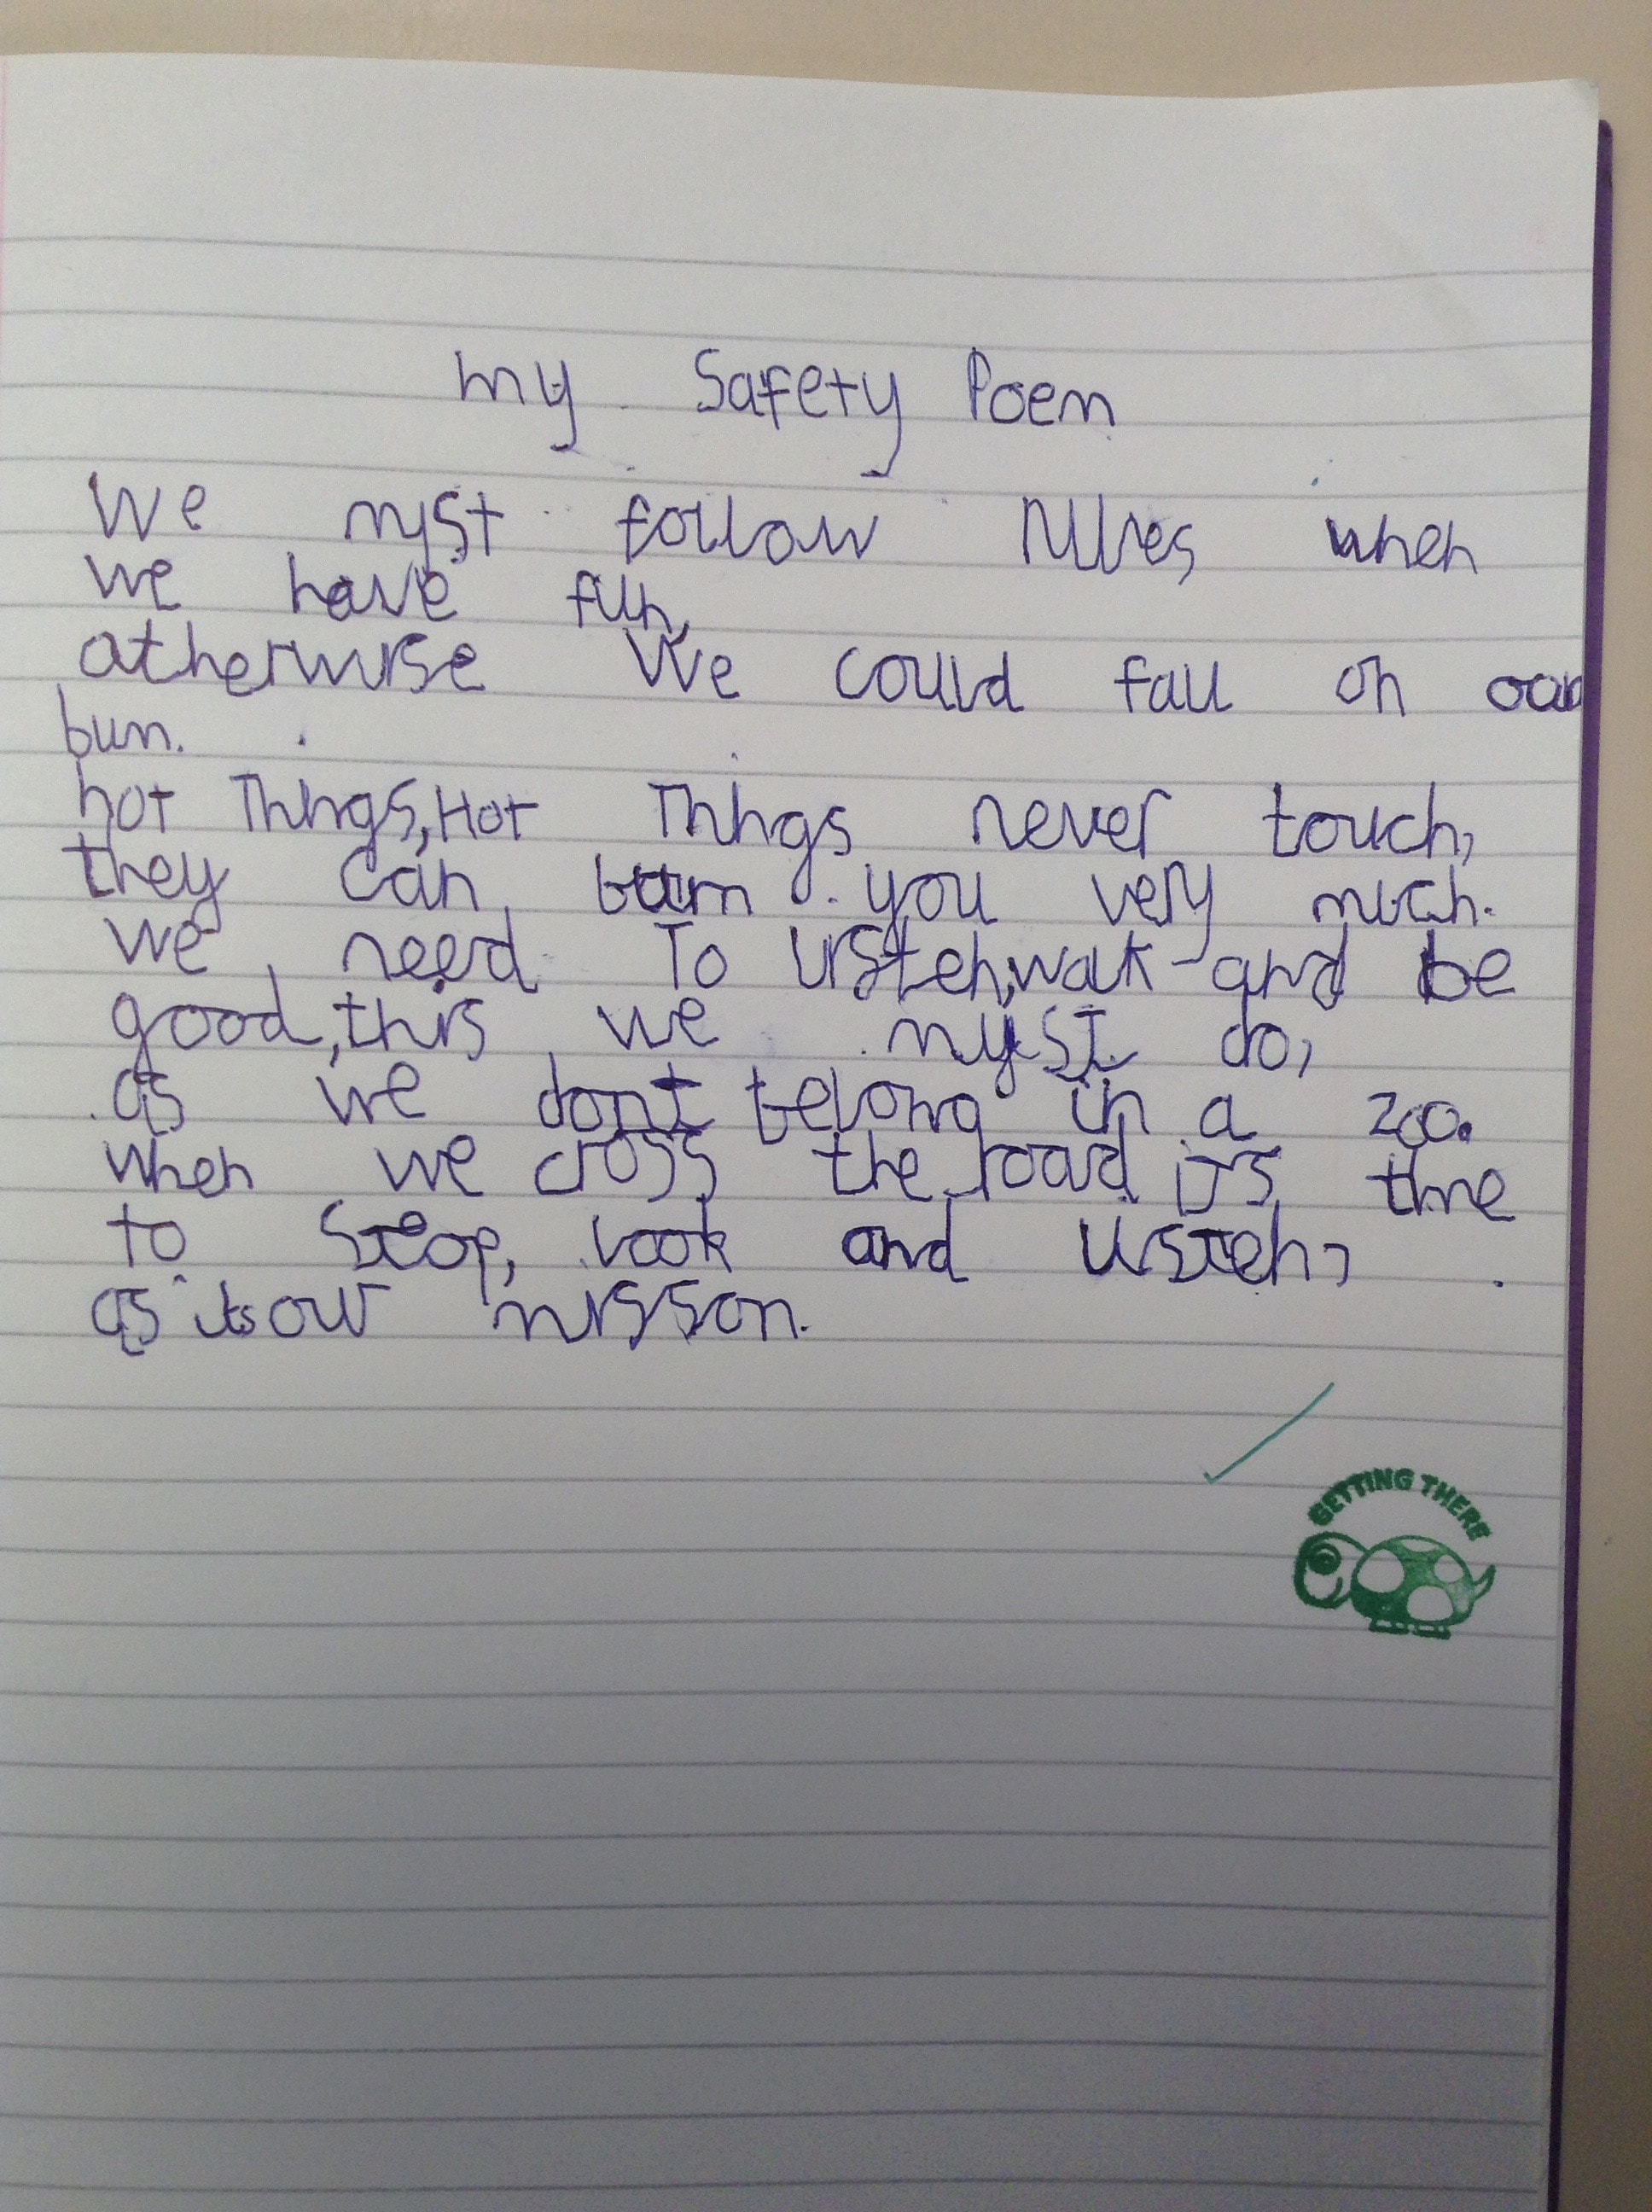 my Safety Poem
We myst follow rules when
we have fun,
atherwise We could fall on
bum.
hot Things, Hot Things never touch,
they can burn you very much.
we need To listen, walk and be
good, this we myst do,
as we dont belong in a zoo.
when we cross the road its time
to Stop, look and listen,
as its our misson.
GETTING THERE